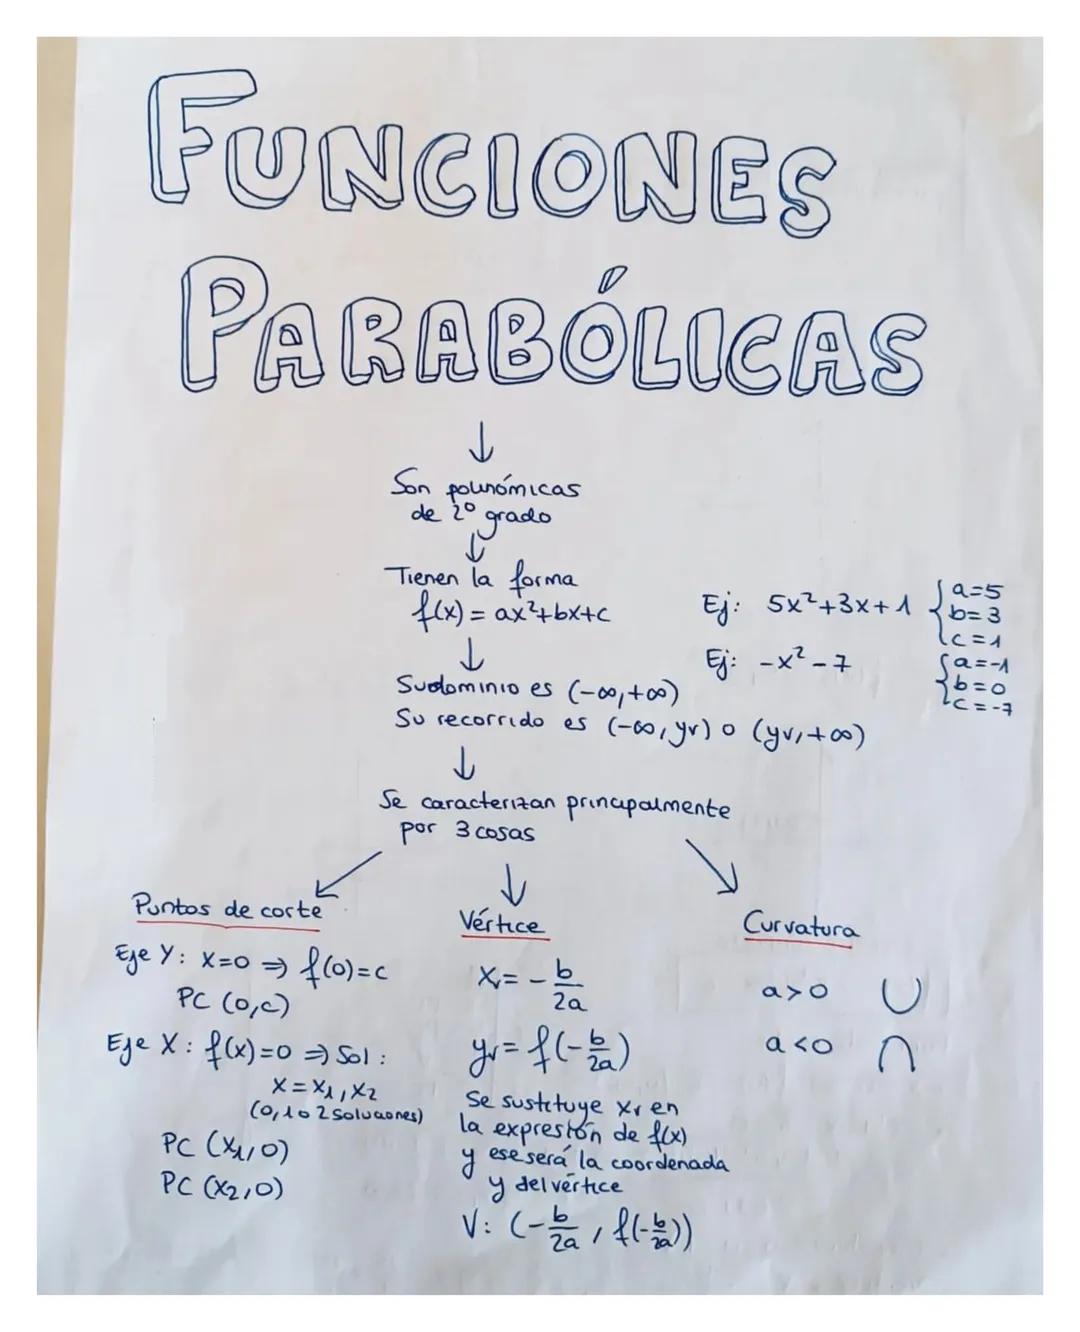 FUNCIONES
PARABÓLICAS
↓
Son polinómicas
de 2º grado
↓
Tienen la forma
f(x) = ax²+bx+c
Ej: 5x²+3x+1 { a=5
b=3
c=1
Ej: -x²-7 { a=-1
b=0
c=-7
↓
Su dominio es (-∞,+∞)
Su recorrido es (-∞,yv) o (yv,+∞)
↓
Se caracterizan principalmente
por 3 cosas
Puntos de corte
Eje Y: x=0 ⇒ f(0)=c
PC (0,c)
Eje X: f(x)=0 ⇒ Sol:
x=x₁,x₂
(0,1 o 2 soluciones)
PC (x₁,0)
PC (x₂,0)
Vértice
xv= -b/2a
yv= f(-b/2a)
Se sustituye xv en
la expresión de f(x)
y ese será la coordenada
y del vértice
V: (-b/2a, f(-b/2a))
Curvatura
a>0 ∪
a<0 ∩